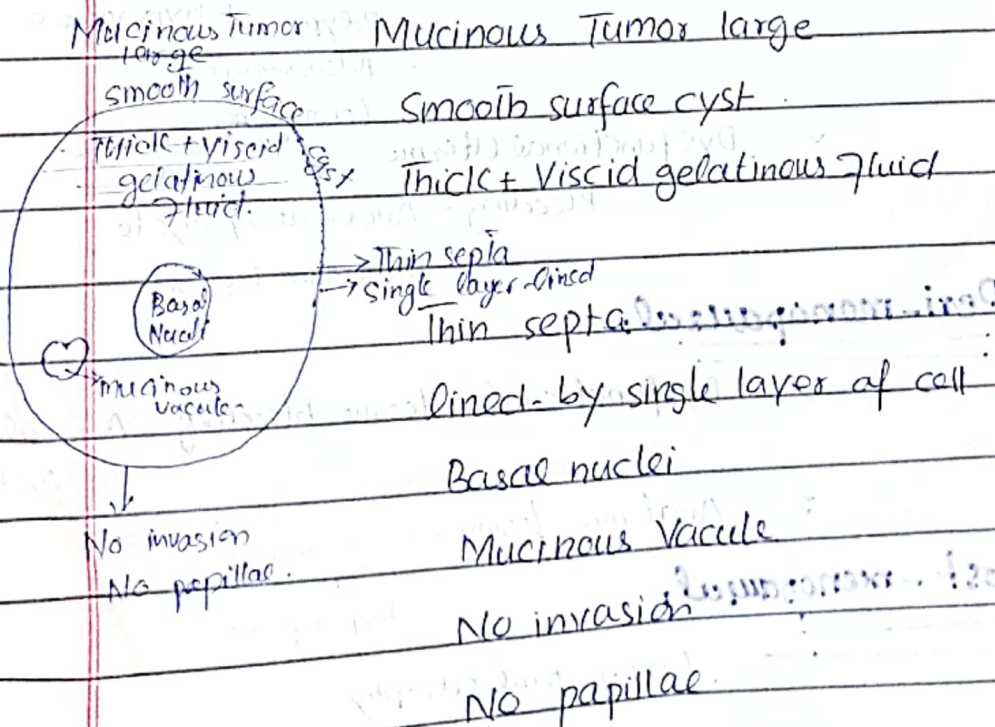 Mucinous Tumor
large
smooth surface
Thick + Viscid
gelatinous
Fluid.
Cyst
→ Thin septa
→ Single layer-lined
Basal
Nucli
mucinous
vacule-
No invasion
No papillae.
Mucinous Tumor large
Smooth surface cyst
Thick + Viscid gelatinous Fluid
Thin septa
lined-by single layer of cell
Basal nuclei
Mucinous Vacule
No invasion
No papillae